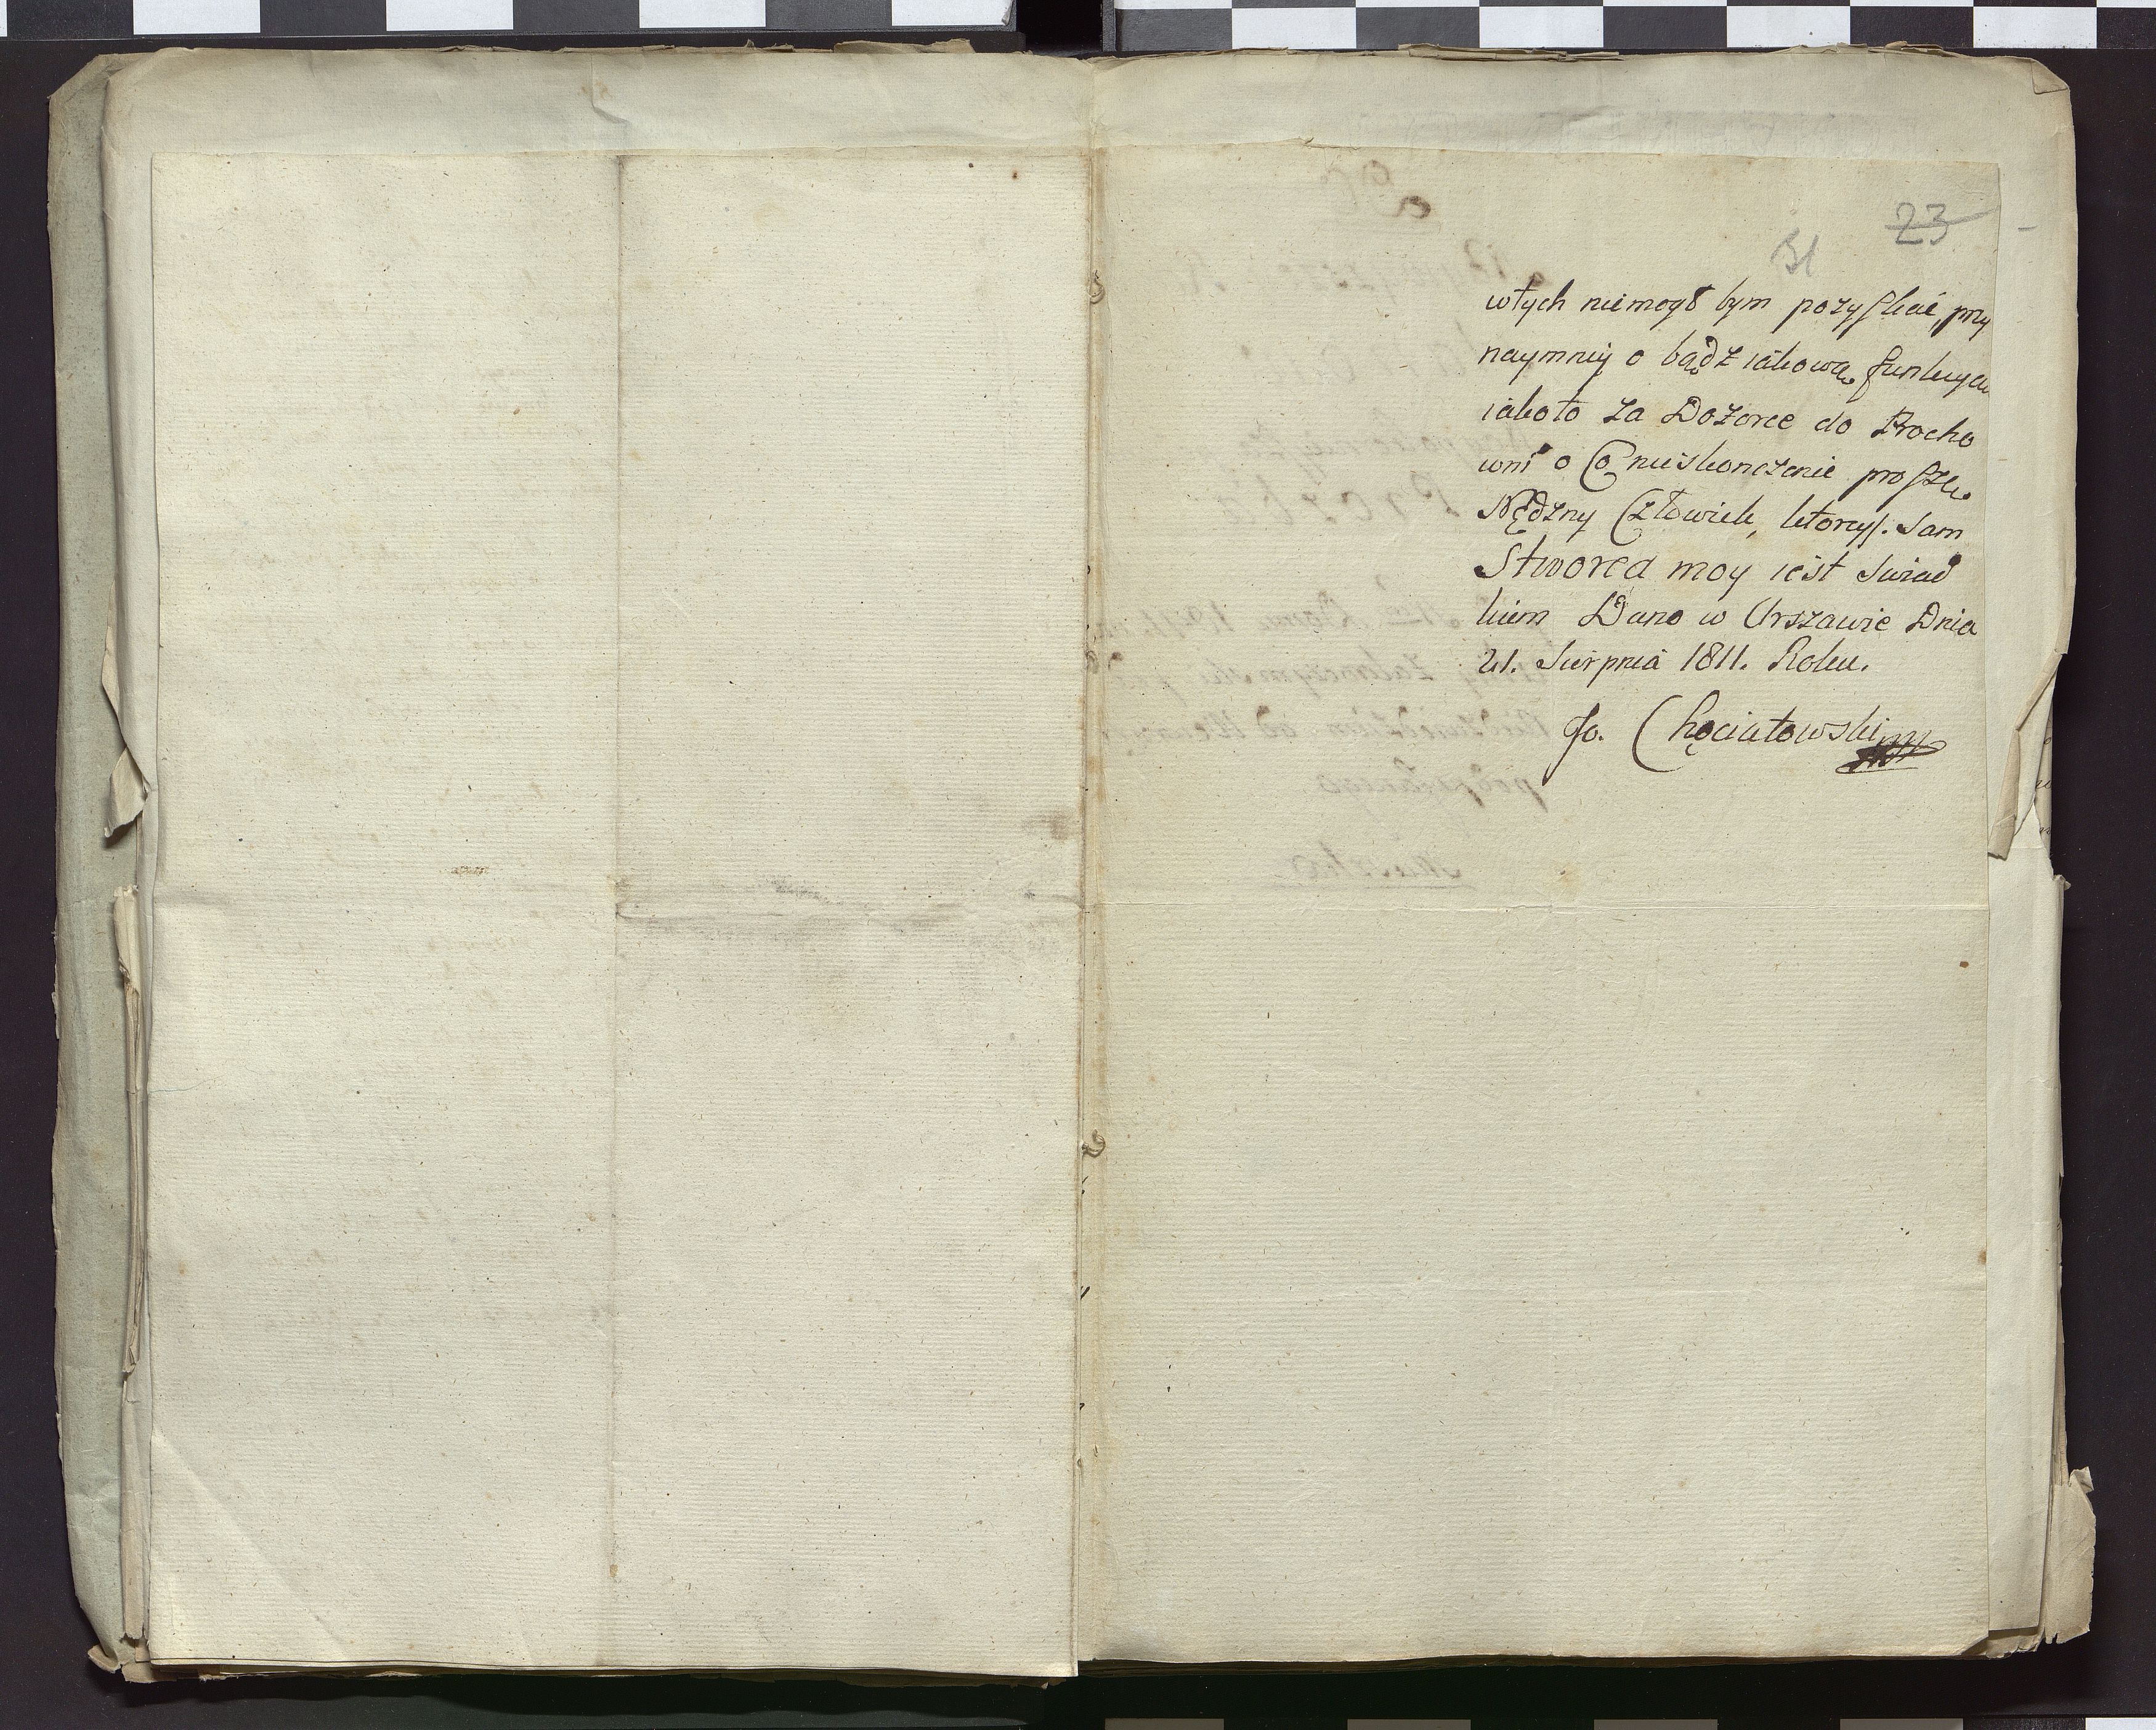 23
31
wtych niemogł bym pozyskać, przy
naymniy o bądź iakową funkcya
iakoto za Dozorce do Procho
wni o Co nieskonczenie proszę
Nędzny Człowiek, ktorys. Sam
Stworca moy iest Swiad
kiem Dano w Urszawie Dnia
21. Sierpnia 1811. Roku.
Jo. Chęciatowski